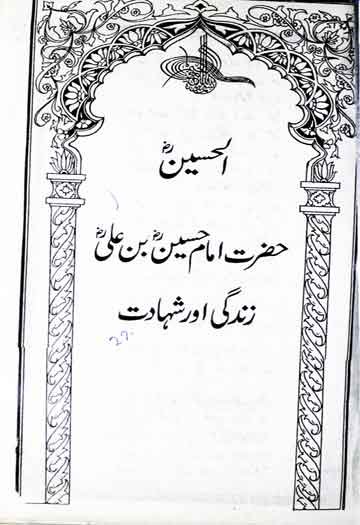 الحسینؓ
حضرت امام حسینؓ بن علیؓ
زندگی اور شہادت